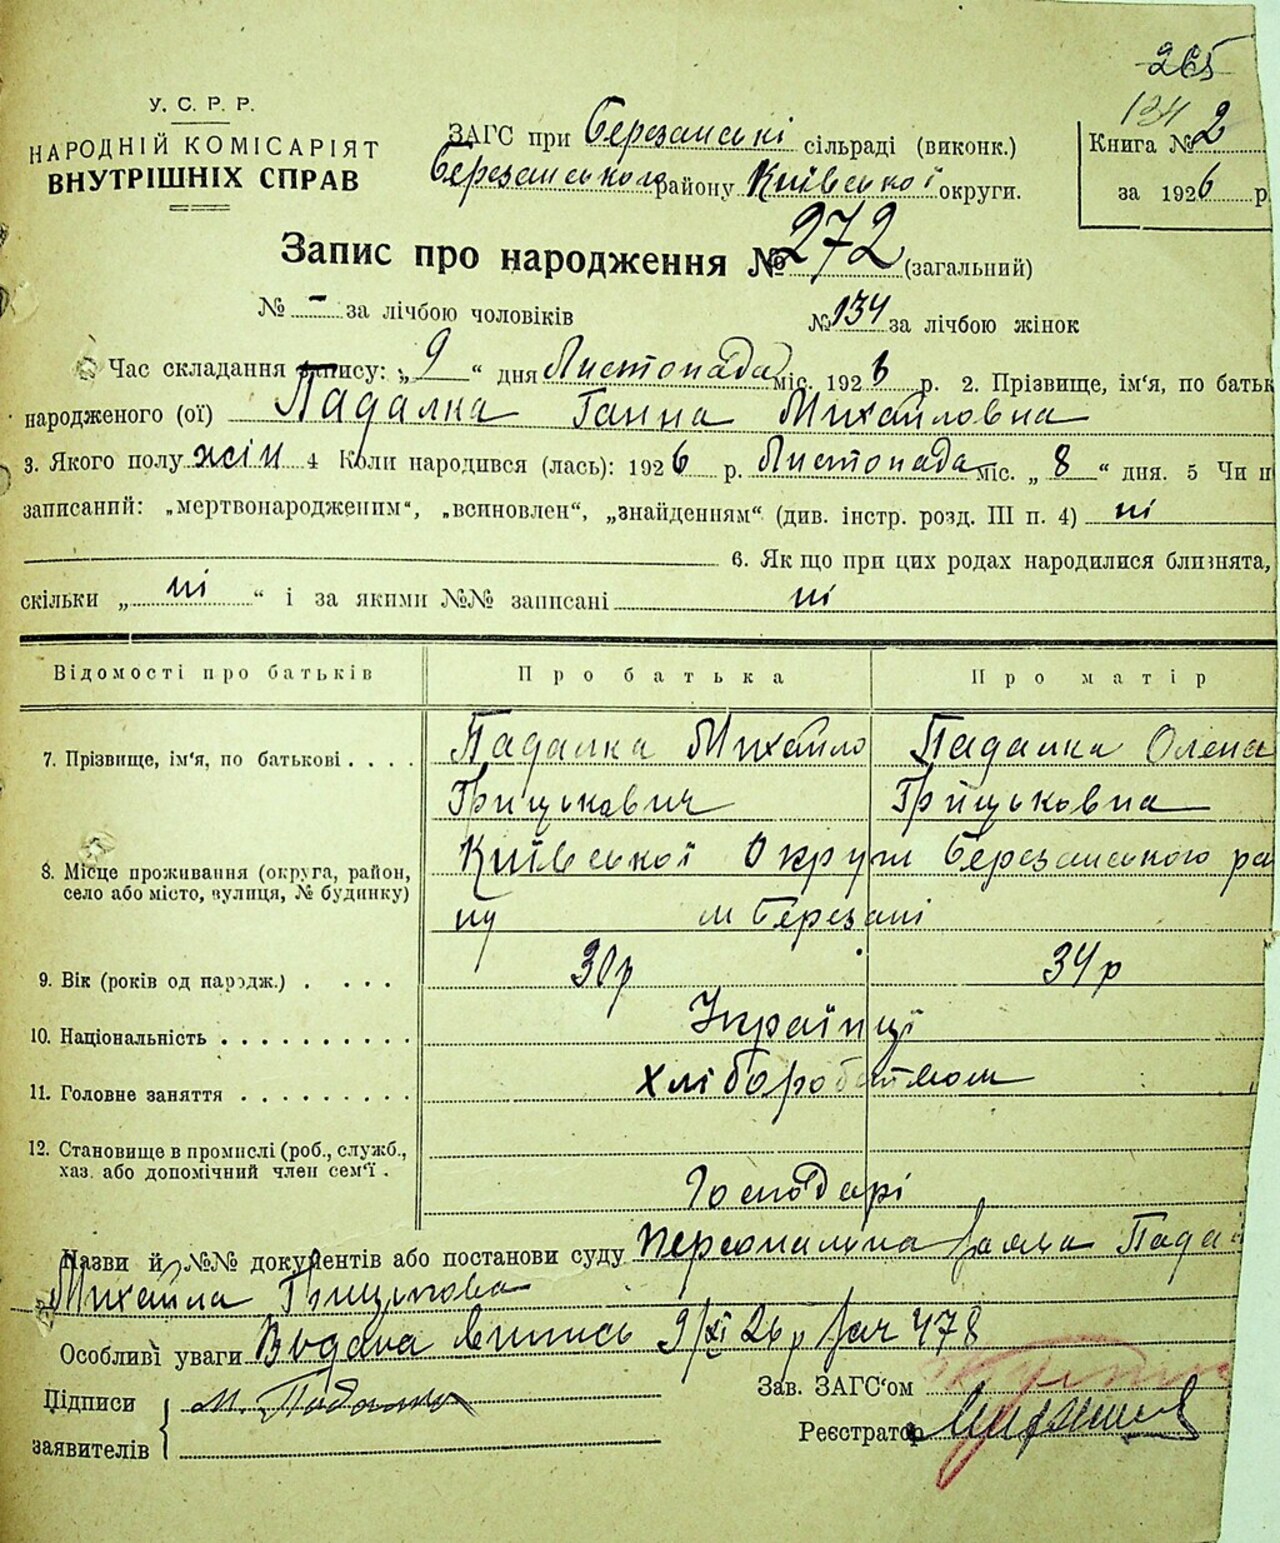 265
134
У. С. Р. Р.
НАРОДНІЙ КОМІСАРІЯТ
ВНУТРІШНІХ СПРАВ
ЗАГС при Березанські сільраді (виконк.)
Березанського району Київської округи.
Книга № 2
за 1926 р
Запис про народження № 272 (загальний)
№ - за лічбою чоловіків № 134 за лічбою жінок
Час складання запису: „9“ дня Листопада міс. 1926 р. 2. Прізвище, ім'я, по батьк
народженого (ої) Падалка Ганна Михайловна
3. Якого полу жін 4 Коли народився (лась): 1926 р. Листопада міс. „8“ дня. 5 Чи н
записаний: „мертвонародженим“, „всиновлен“, „знайденням“ (див. інстр. розд. III п. 4) ні
6. Як що при цих родах народилися близнята,
скільки „ні“ і за якими №№ записані ні
Відомості про батьків Про батька Про матір
7. Прізвище, ім'я, по батькові . . . . Падалка Михайло Падалка Олена
Грицькович Грицьковна
8. Місце проживання (округа, район, Київської Округи Березанського ра
село або місто, вулиця, № будинку)
ну м Березані
9. Вік (років од народж.) . . . . 30р 34р
10. Національність . . . . . . . . . . Українці
11. Головне заняття . . . . . . . . . Хліборобством
12. Становище в промислі (роб., служб.,
хаз. або допомічний член сем'ї .
Господарі
Назви й №№ документів або постанови суду Персонална заява Пада
Михайла Грицькова
Особливі уваги Видана випись 9/XI 26 р за № 478
Підписи М. Падалка
заявителів
Зав. ЗАГС'ом
Реєстратор